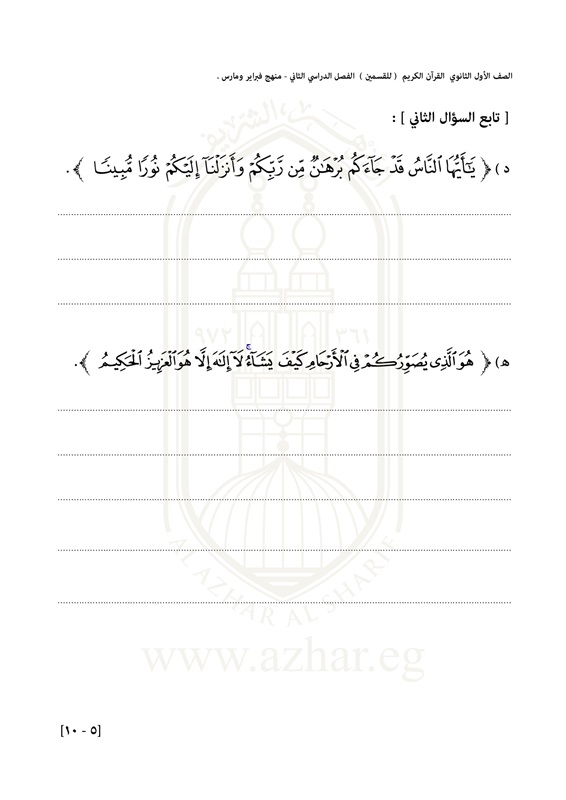 الصف الأول الثانوي القرآن الكريم ( للقسمين ) الفصل الدراسي الثاني - منهج فبراير ومارس .
[ تابع السؤال الثاني ] :
د ) ﴿ يَـٰٓأَيُّهَا ٱلنَّاسُ قَدْ جَآءَكُم بُرْهَـٰنٌ مِّن رَّبِّكُمْ وَأَنزَلْنَآ إِلَيْكُمْ نُورًا مُّبِينًا ﴾ .
٩٧٢ ٣٦١
هـ) ﴿ هُوَ ٱلَّذِى يُصَوِّرُكُمْ فِى ٱلْأَرْحَامِ كَيْفَ يَشَآءُ ۚ لَآ إِلَـٰهَ إِلَّا هُوَ ٱلْعَزِيزُ ٱلْحَكِيمُ ﴾ .
AL AZHAR AL SHARIF
www.azhar.eg
[٥ - ١٠]